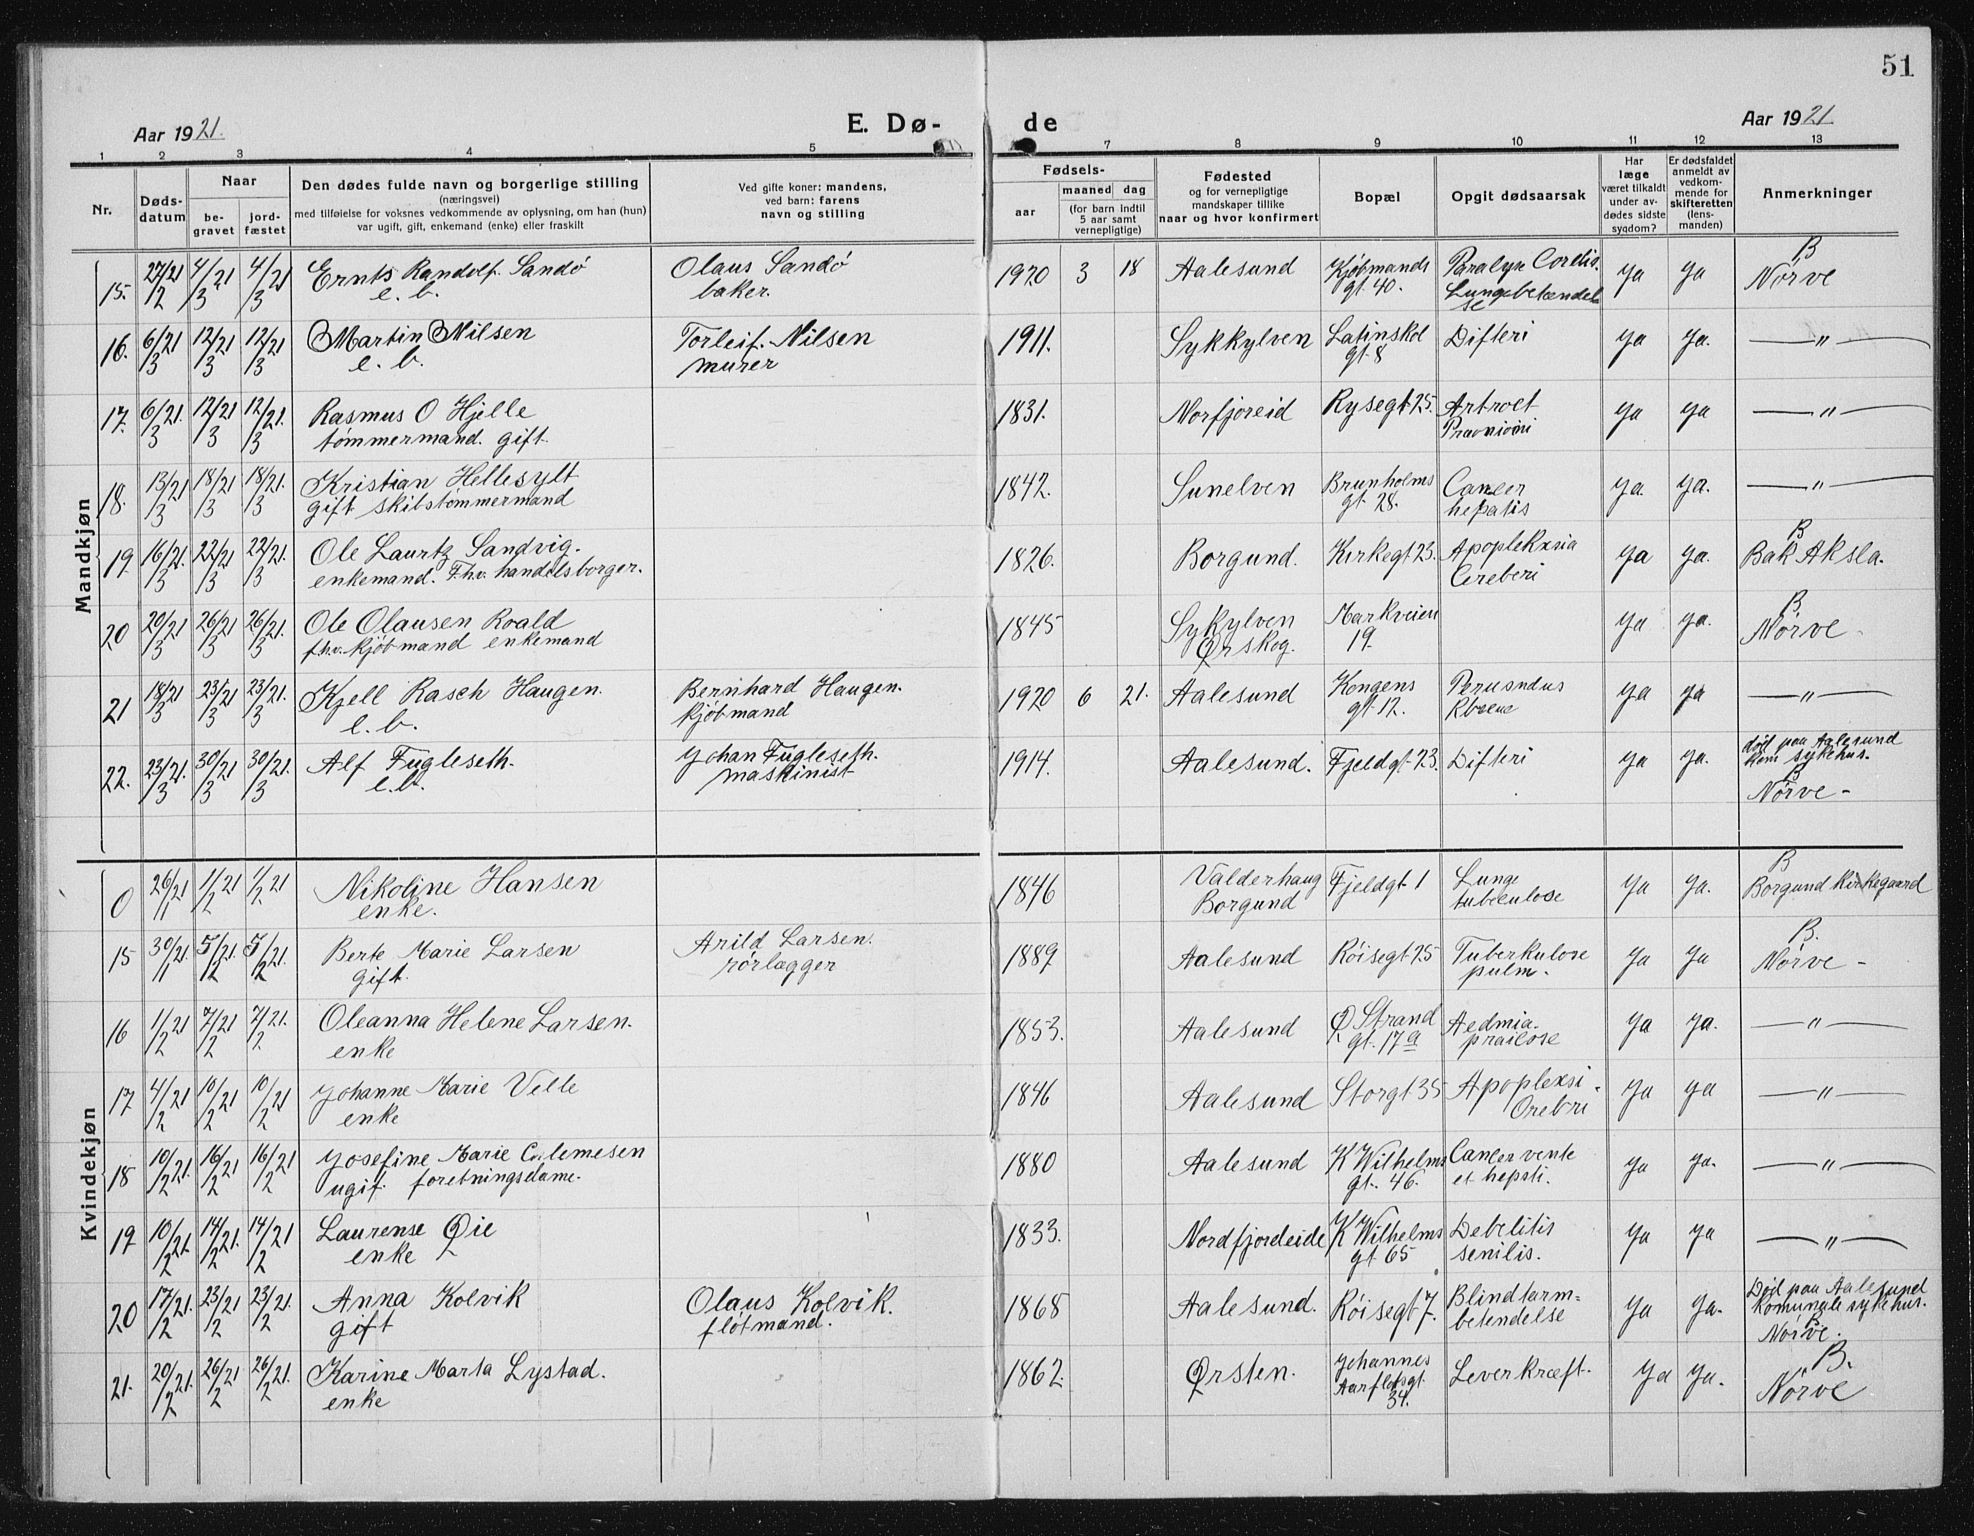 51
Aar 1921.
E. Dø-
de
Aar 1921
1 2 3 4 5 7 8 9 10 11 12 13
Nr.
Døds-
datum
Naar
be-
gravet
jord-
fæstet
Den dødes fulde navn og borgerlige stilling
(næringsvei)
med tilføielse for voksnes vedkommende av oplysning, om han (hun)
var ugift, gift, enkemand (enke) eller fraskilt
Ved gifte koner: mandens,
ved barn: farens
navn og stilling
Fødsels-
aar
maaned dag
(for barn indtil
5 aar samt
vernepligtige)
Fødested
og for vernepligtige
mandskaper tillike
naar og hvor konfirmert
Bopæl
Opgit dødsaarsak
Har
læge
været tilkaldt
under av-
dødes sidste
sygdom?
Er dødsfaldet
anmeldt av
vedkom-
mende for
skifteretten
(lens-
manden)
Anmerkninger
Mandkjøn
15. 27/2 21 4/3 21 4/3 21 Ernts Randolf. Sandö Olaus Sandö 1920 3 18 Aalesund Kjöbmands Paralyse Cordis. Ya Ya B
e. b. baker. gt. 40. Lungebetændel Nörve
se
16. 6/3 21 12/3 21 12/3 21 Martin Nilsen Torleif. Nilsen 1911. Sykkylven Latinskol Difteri Ya Ya. — " —
e. b. murer gt. 8
17. 6/3 21. 12/3 21 12/3 21. Rasmus O Hjelle 1831. Norfjoreid Rysegt 25. Ya Ya — " —
tømmermand. gift.
18. 13/3 21 18/3 21 18/3 21. Kristian Hellesylt 1842. Sunelven Brunholms Cancer Ya. Ya. — " —
gift skibstømmermand gt 28. hepatis
19 16/3 21. 22/3 21 22/3 21. Ole Laurtz Sandvig. 1826. Borgund. Kirkegt 23. Apoplekxsia Ya Ya. B
enkemand. Fhv. handelsborger. Cereberi Bak Aksla.
20 20/3 21 26/3 21 26/3 21. Ole Olausen Roald 1845 Sykylven Markveien Ya Ya. B.
fhv. kjöbmand enkemand Ørskog. 19. Nörve -
21 18/3 21 23/3 21 23/3 21. Kjell Rasch Haugen. Bernhard Haugen. 1920 6 21. Aalesund Kongens Ya Ya — " —
e. b. kjöbmand gt 12.
22. 23/3 21. 30/3 21 30/3 21. Alf Fugleseth. Johan Fugleseth. 1914. Aalesund. Fjeldgt 23. Difteri Ya Ya. död paa Aalesund
e. b. maskinist kom sykehus.
B
Nörve -
Kvindekjøn
0 26/1 21 1/2 21 1/2 21 Nikoline Hansen 1846 Valderhaug Fjeldgt 1 Lunge Ya Ya. B
enke. Borgund tubeculose Borgund Kirkegaard
15 30/1 21. 5/2 21. 5/2 21. Berte Marie Larsen Arild Larsen. 1889 Aalesund Röisegt 25 Tuberkulose Ya Ya B.
gift. rörlægger pulm. Nörve -
16 1/2 21 7/2 21 7/2 21. Oleanna Helene Larsen. 1853. Aalesund Ø Strand Ya Ya. — " —
enke gt. 17 a
17 4/2 21 10/2 21 10/2 21 Johanne Marie Velle 1846 Aalesund Storgt 35 Apoplexsi. Ya Ya — " —
enke Crebri
18 10/2 21. 16/2 21 16/2 21 Josefine Marie Clemesen 1880 Aalesund K Wilhelms Cancer vente Ya Ya. — " —
ugif. foretningsdame. gt. 46. et hepsti.
19 10/2 21. 14/2 21. 14/2 21 Laurense Øie 1833. Nordfjordeide K Wilhelms Debelitis Ya Ya — " —
enke gt 65 senilis.
20 17/2 21. 23/2 21 23/2 21. Anna Kolvik Olaus Kolvik. 1868 Aalesund. Röisegt 7. Blindtarm- Ya Ya. Död paa Aalesund
gift flötmand. betendelse Komunale sykehus.
B.
Nörve.
21. 20/2 21. 26/2 21 26/2 21. Karine Marta Lystad. 1862. Ørsten. Johannes Leverkræft. Ya Ya. B.
enke Aarflotsgt Nörve
34.